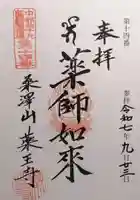 第十四番
奉拝
参拝令和七年九月廿三日
薬師如来
桑澤山 薬王寺